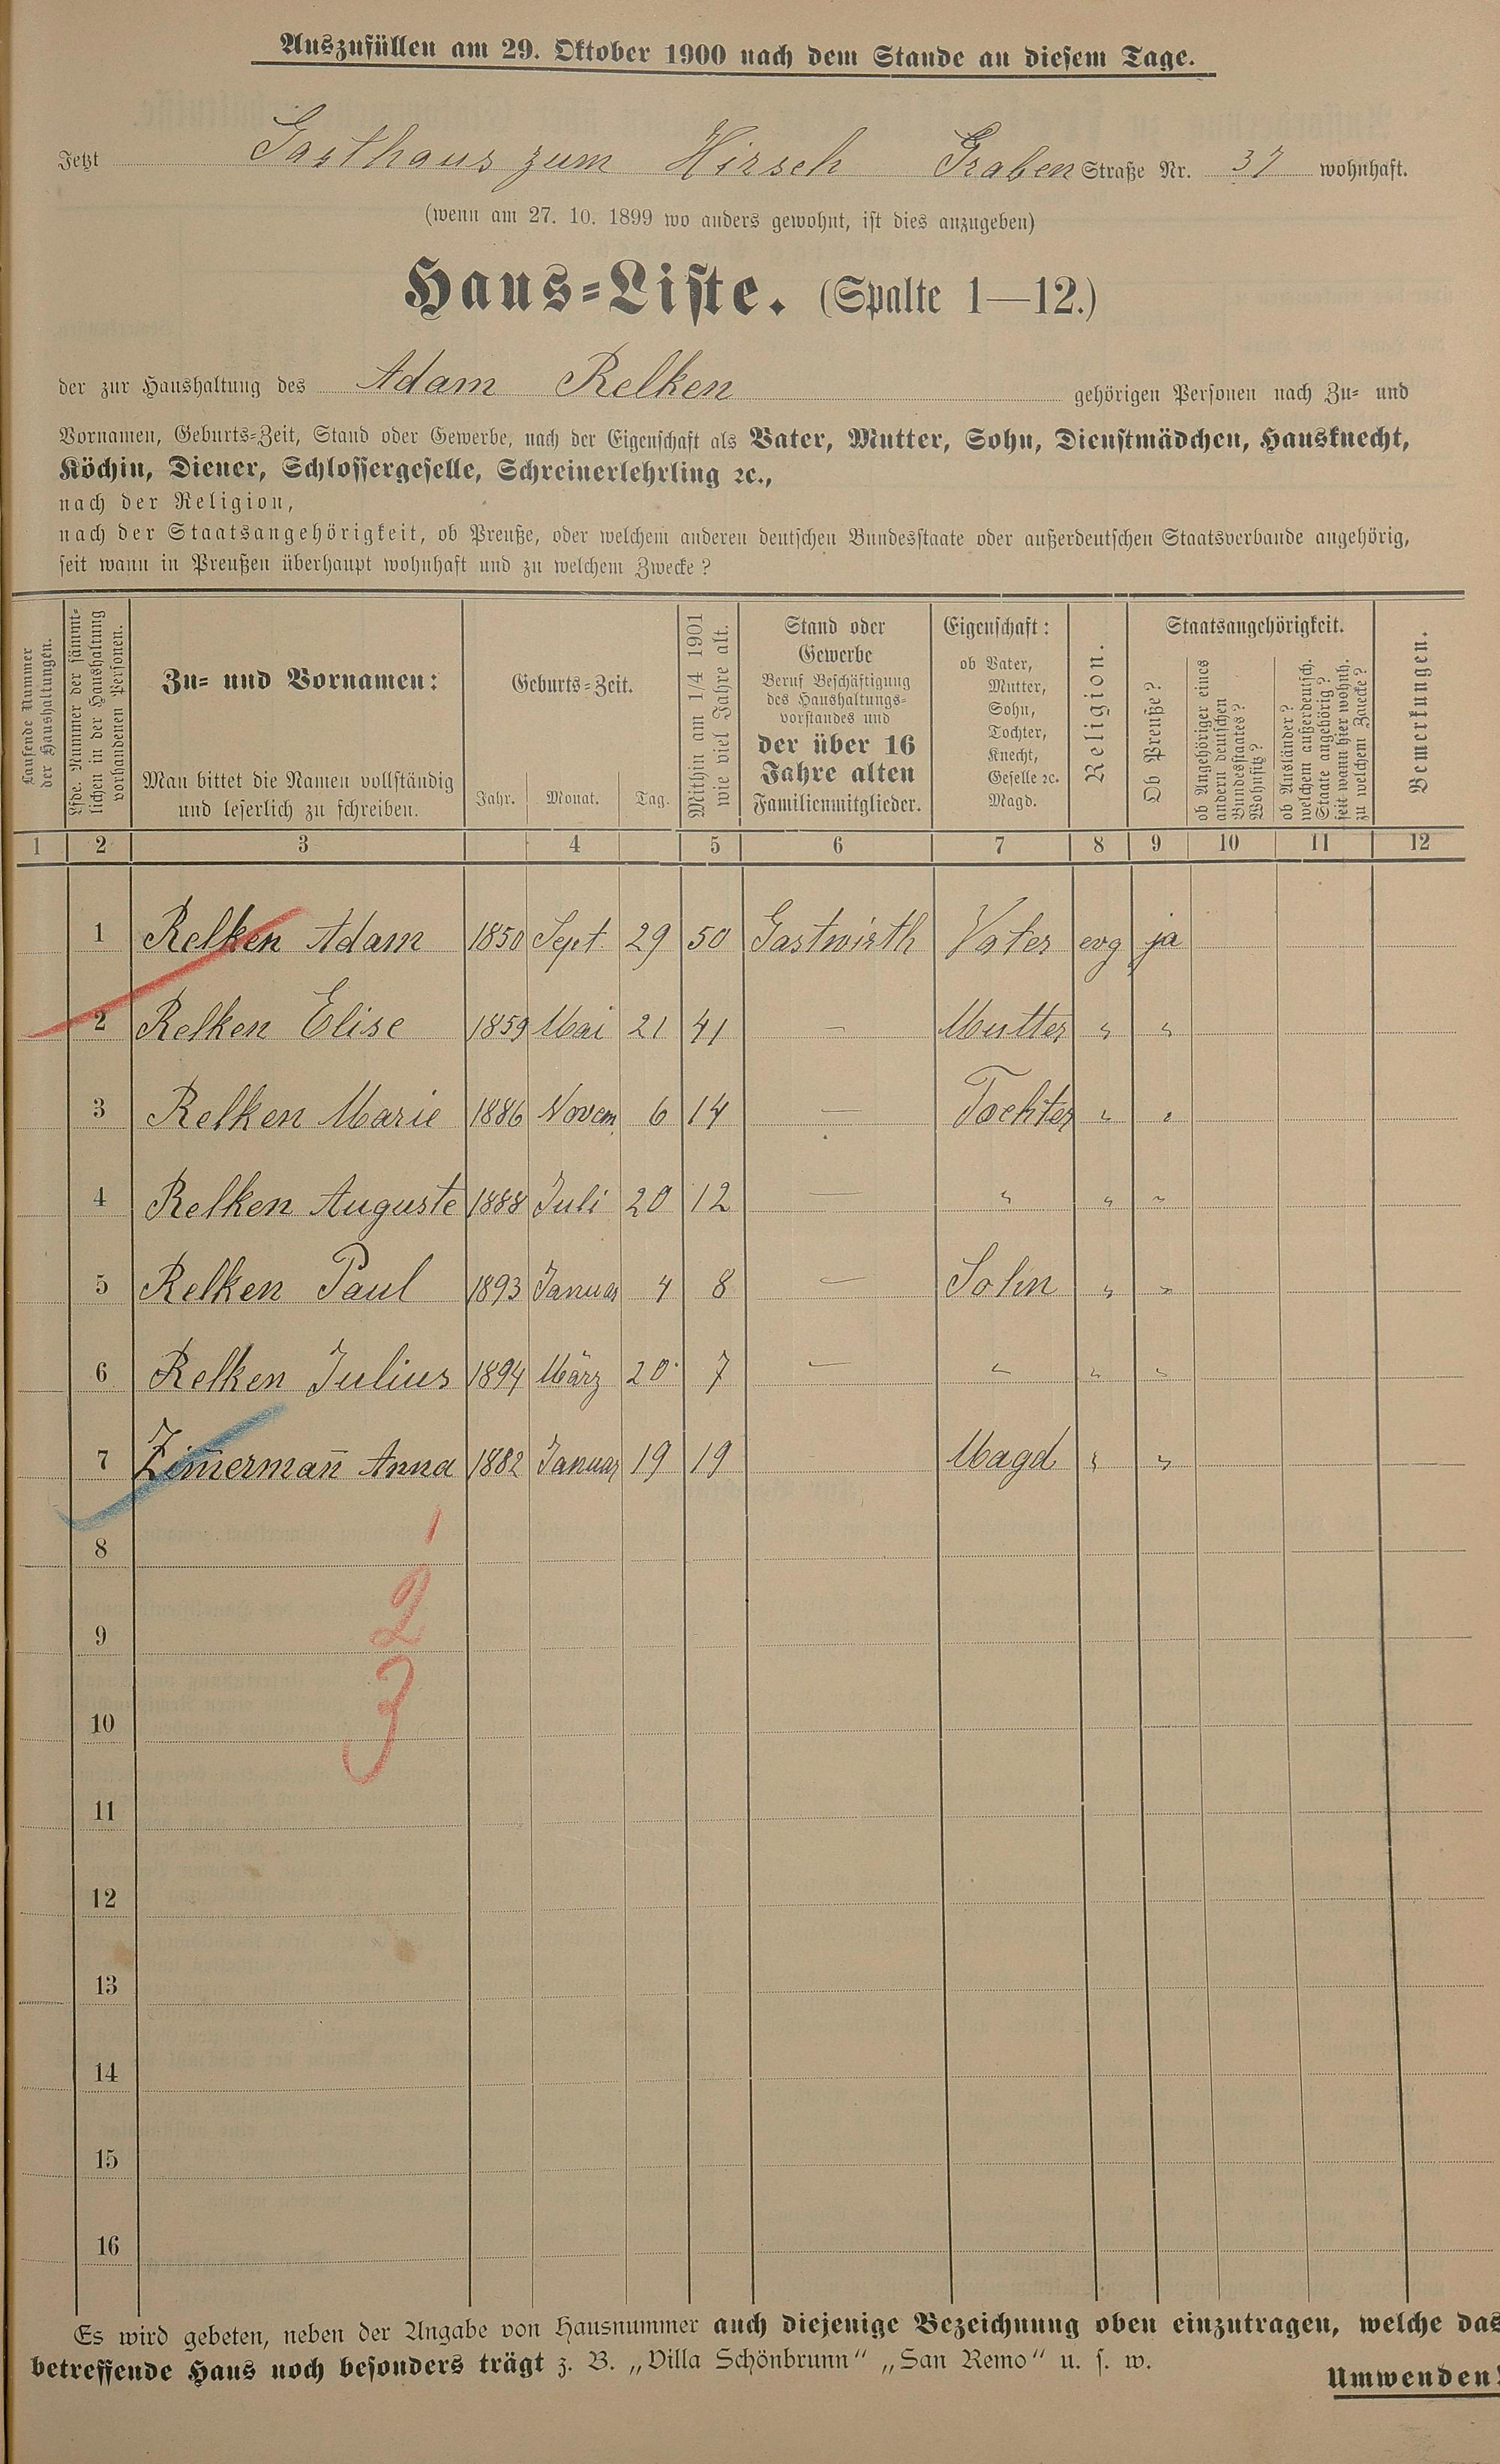 Auszufüllen am 29. Oktober 1900 nach dem Stande an diesem Tage.
Jetzt Gasthaus zum Hirsch Graben Straße Nr. 37 wohnhaft.
(wenn am 27. 10. 1899 wo anders gewohnt, ist dies anzugeben)
Haus-Liste. (Spalte 1—12.)
der zur Haushaltung des Adam Relken gehörigen Personen nach Zu- und
Vornamen, Geburts-Zeit, Stand oder Gewerbe, nach der Eigenschaft als Vater, Mutter, Sohn, Dienstmädchen, Hausknecht,
Köchin, Diener, Schlossergeselle, Schreinerlehrling ꝛc.,
nach der Religion,
nach der Staatsangehörigkeit, ob Preuße, oder welchem anderen deutschen Bundesstaate oder außerdeutschen Staatsverbande angehörig,
seit wann in Preußen überhaupt wohnhaft und zu welchem Zwecke?
Laufende Nummer
der Haushaltungen.
Lfde. Nummer der sämmt-
lichen in der Haushaltung
vorhandenen Personen.
Zu- und Vornamen:
Man bittet die Namen vollständig
und leserlich zu schreiben.
Geburts-Zeit.
Jahr. Monat. Tag.
Mithin am 1/4 1901
wie viel Jahre alt.
Stand oder
Gewerbe
Beruf Beschäftigung
des Haushaltungs-
vorstandes und
der über 16
Jahre alten
Familienmitglieder.
Eigenschaft:
ob Vater,
Mutter,
Sohn,
Tochter,
Knecht,
Geselle ꝛc.
Magd.
Religion.
Staatsangehörigkeit.
Ob Preuße?
ob Angehöriger eines
andern deutschen
Bundesstaates?
Wohnsitz?
ob Ausländer?
welchem außerdeutsch.
Staate angehörig?
seit wann hier wohnh.
zu welchem Zwecke?
Bemerkungen.
1 2 3 4 5 6 7 8 9 10 11 12
1 Relken Adam 1850 Sept. 29 50 Gastwirth Vater evg ja
2 Relken Elise 1859 Mai 21 41 — Mutter " "
3 Relken Marie 1886 Novem 6 14 — Tochter " "
4 Relken Auguste 1888 Juli 20 12 — " " "
5 Relken Paul 1893 Januar 4 8 — Sohn " "
6 Relken Julius 1894 März 20 7 — " " "
7 Zim̄erman̄ Anna 1882 Januar 19 19 Magd " "
1
8
2
9
3
10
11
12
13
14
15
16
Es wird gebeten, neben der Angabe von Hausnummer auch diejenige Bezeichnung oben einzutragen, welche das
betreffende Haus noch besonders trägt z. B. „Villa Schönbrunn“ „San Remo“ u. s. w.
Umwenden!